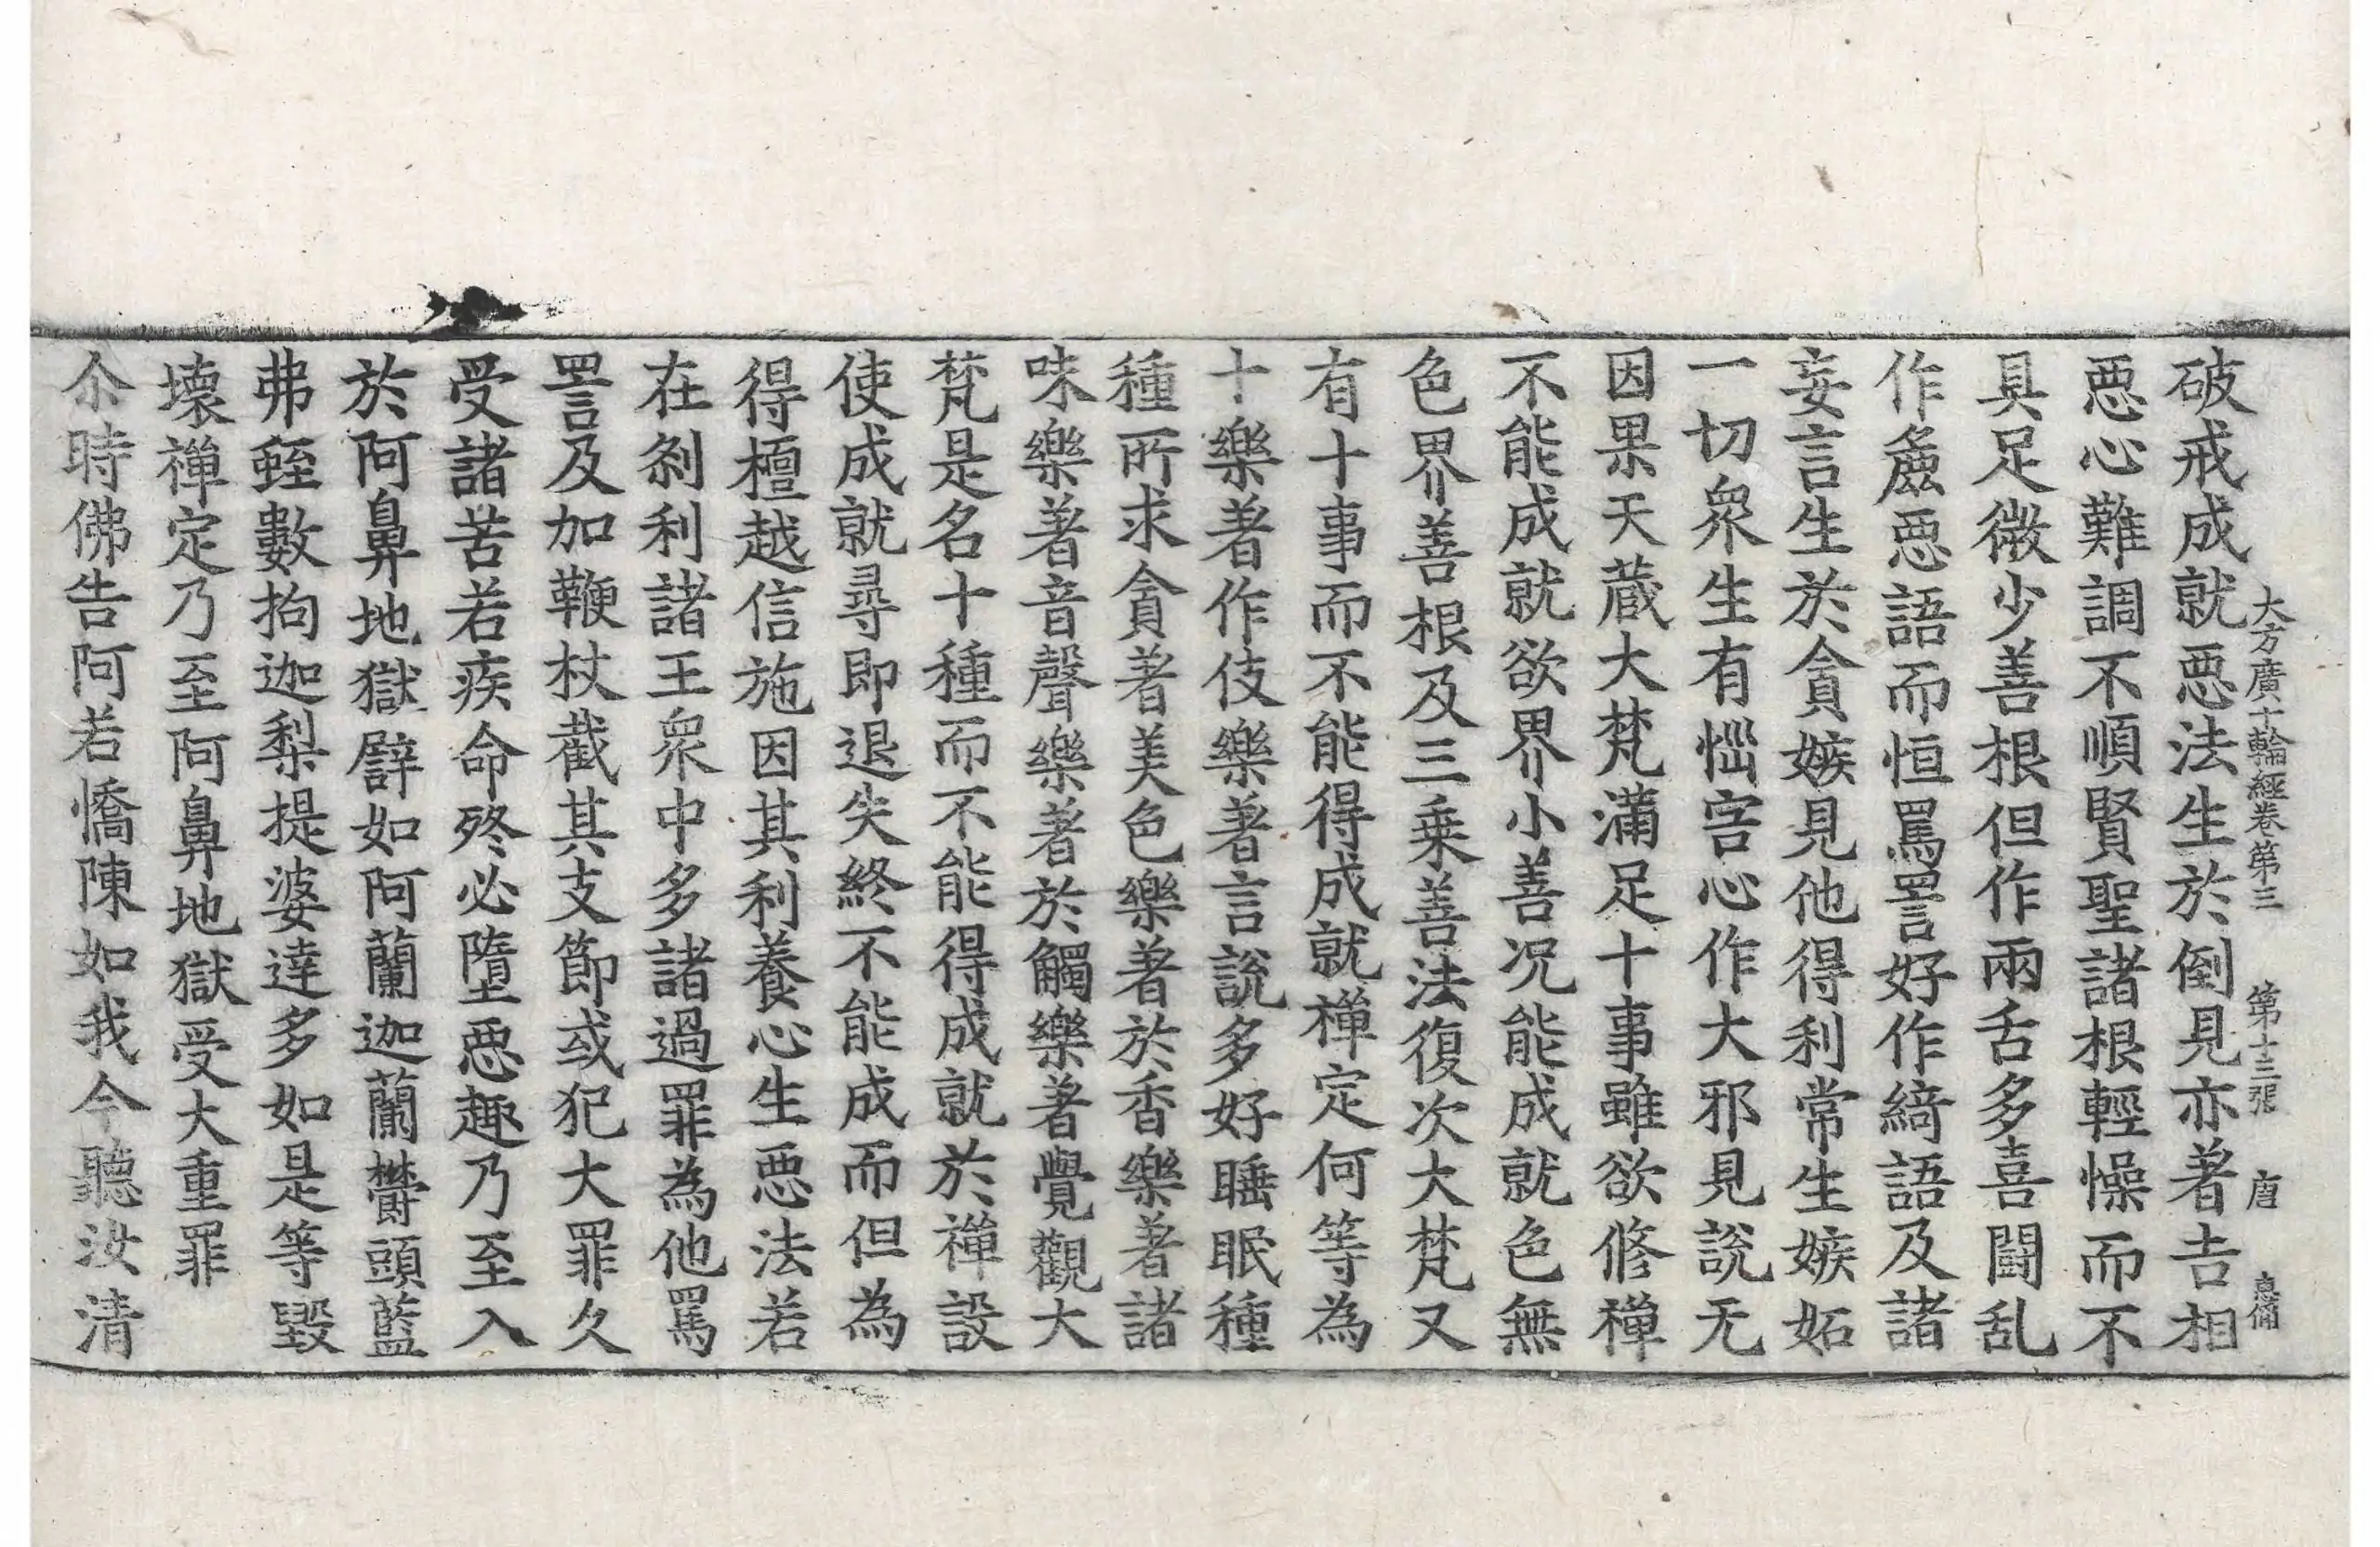 大方廣十輪經卷第三 第十三張 唐
破戒成就惡法生於倒見亦著吉相
惡心難調不順賢聖諸根輕懆而不
具足微少善根但作兩舌多喜鬪乱
作麁惡語而恒罵詈好作綺語及諸
妄言生於貪嫉見他得利常生嫉妬
一切衆生有惱害心作大邪見說无
因果天蔵大梵滿足十事雖欲修禪
不能成就欲界小善况能成就色無
色界善根及三乗善法復次大梵又
有十事而不能得成就禪定何等為
十樂著作伎樂著言說多好睡眠種
種所求貪著美色樂著於香樂著諸
味樂著音聲樂著於觸樂著覺觀大
梵是名十種而不能得成就於禪設
使成就尋即退失終不能成而但為
得檀越信施因其利養心生惡法若
在刹利諸王衆中多諸過罪為他罵
詈及加鞭杖截其支節或犯大罪久
受諸苦若疾命終必墮惡趣乃至入
於阿鼻地獄辟如阿蘭迦蘭欝頭藍
弗蛭數拘迦梨提婆達多如是等毀
壊禪定乃至阿鼻地獄受大重罪
尒時佛告阿若憍陳如我今聽汝清